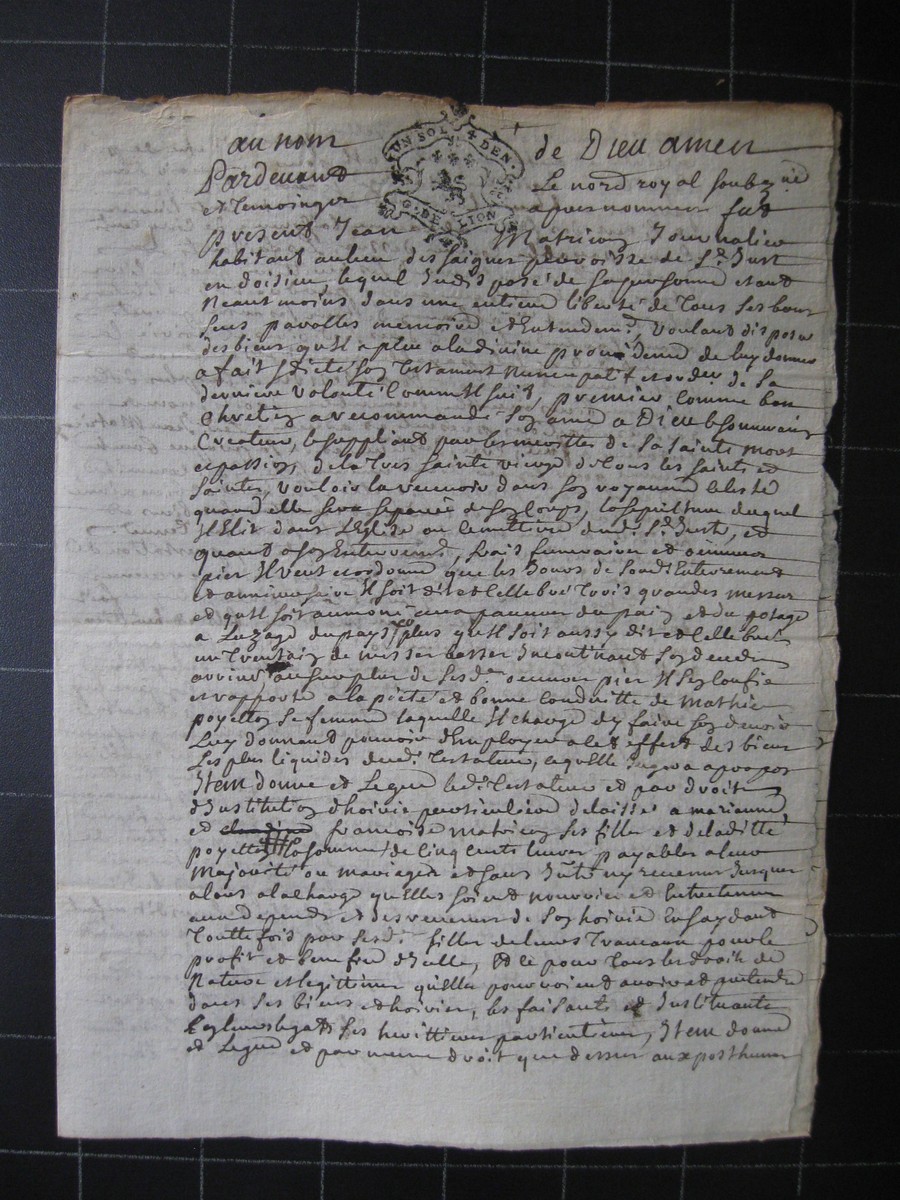 au nom de Dieu amen
UN SOL 4 DEN.
G. DE LION
Pardevant Le nore royal soubzne
et temoingz apres nommez fut
present Jean Matricon Journalier
habitant au lieu des saignes parroisse de St Just
en doisieu, lequel Indisposé de sa personne etant
Neantmoins dans une entiere liberté de Tous ses bons
sens parolles memoire et Entendemt, Voulant disposer
des biens qu'Il a plue a la divine providence de luy donner
a fait et dicté son Testament Nuncupatif et ordce de Sa
derniere volonté Comm'Il suit, premier comme bon
Chretien a recommandé Son ame a Dieu le Souverain
Createur, le suppliant par les merittes de Sa Sainte Mort
et passion, de la Tres Sainte vierge de Tous les saints et
saintes, vouloir la recevoir dans son royaume Celeste
quand elle sera separée de son Corps, la sepulture duquel
Il Elit dans L'Eglise ou cimettiere dudt St Just, et
quant a son Enterremt, frais funeraires et oeuvres
pies Il veut et ordonne que les Jours de sondt Enterrement
et anniversaire Il soit dit et Cellebré Trois grandes messes
et qu'Il soit aumoné aux pauvres du pain et du potage
a L'uzage du pays, plus qu'Il soit aussy dit et Cellebré
un Trentain de messes basses Incontinant son deces
arrivé, au surplus de sesd. oeuvres pies Il s'en Confie
et rapporte a la pieté et bonne Conduitte de Mathie
poyetton sa femme laquelle Il charge d'y faire son devoir
Luy donnant pouvoir d'Employer a cet effet des biens
Les plus liquides dudt Testateur, lequelle Jugera apropos
Item donne et Legue ledt Testateur et par droit
d'Institution d'hoirie particuliere delaisse a marianne
et françoise Matricon ses filles et de laditte
poyetton la somme de Cinq cents livres payables a leur
Majorité ou mariages et sans Interests ny revenus Jusques
alors a la charge qu'elles soient nourries et Entretenues
aux depends et des revenus de son hoirie En s'aydant
Touttefois par sesd. filles de leurs Travaux pour le
profit et benefice d'Icelle, Et ce pour Tous les droits de
Nature et legittime qu'elles pourroient avoir et pretendre
dans ses biens et hoiries, les faisant et Instituant
En leurs legats ses herittieres particulieres, Item donne
et Legue et par meme droit que dessus aux posthumes